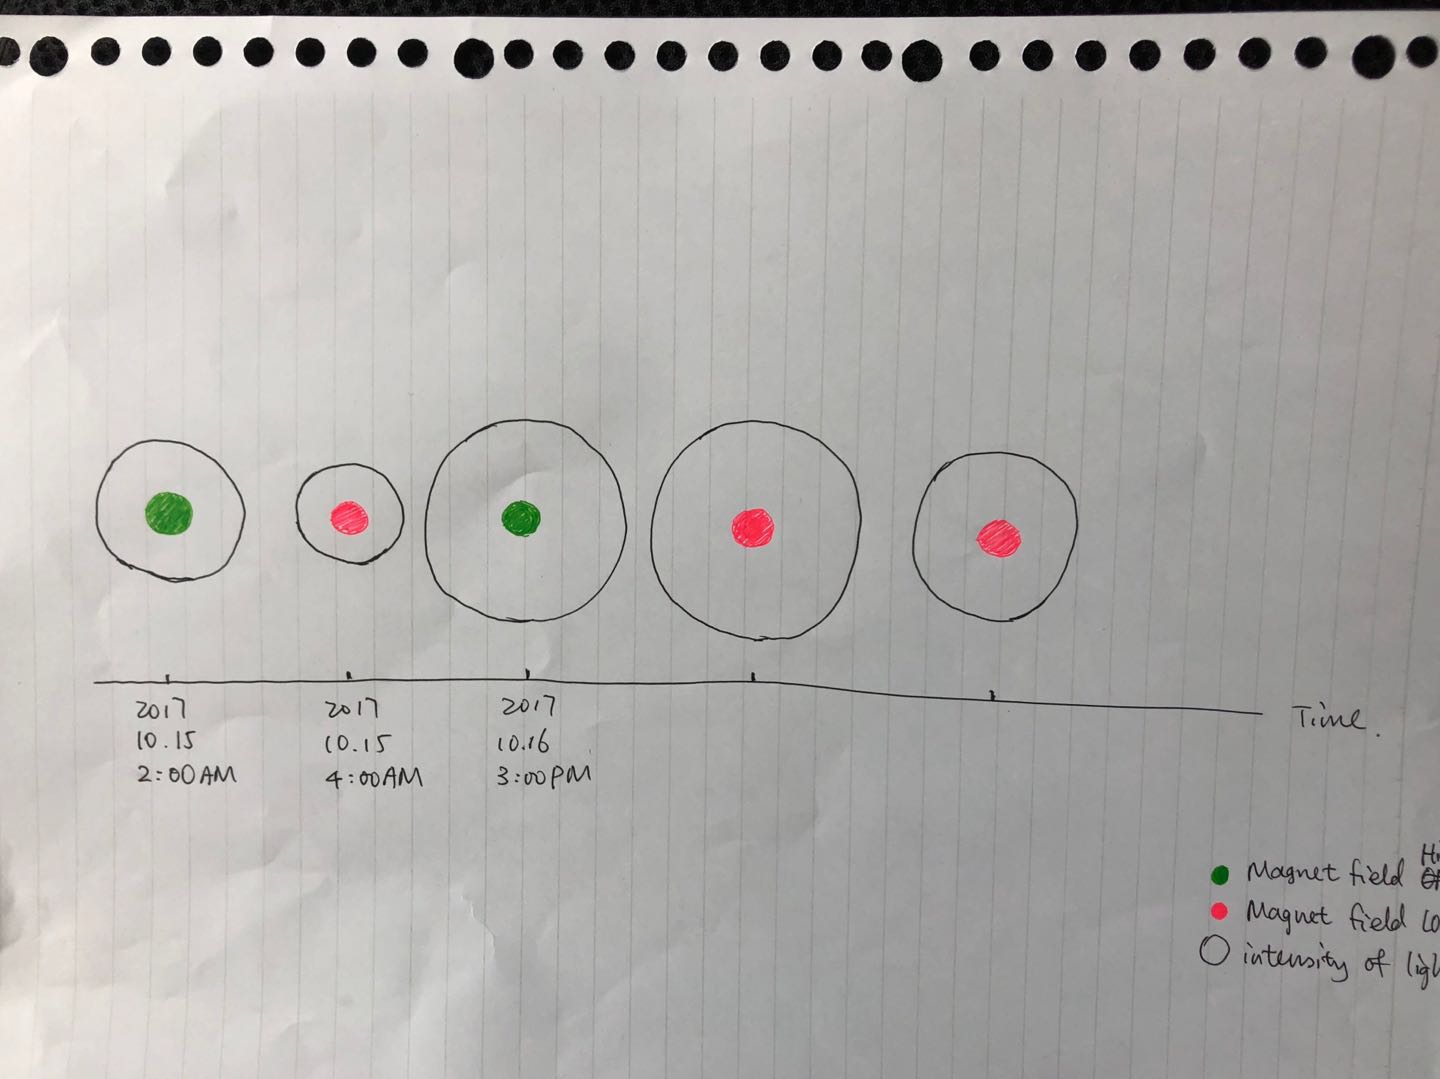 2017
10.15
2:00AM
2017
10.15
4:00AM
2017
10.16
3:00PM
Time.
Magnet field
Magnet field
intensity of